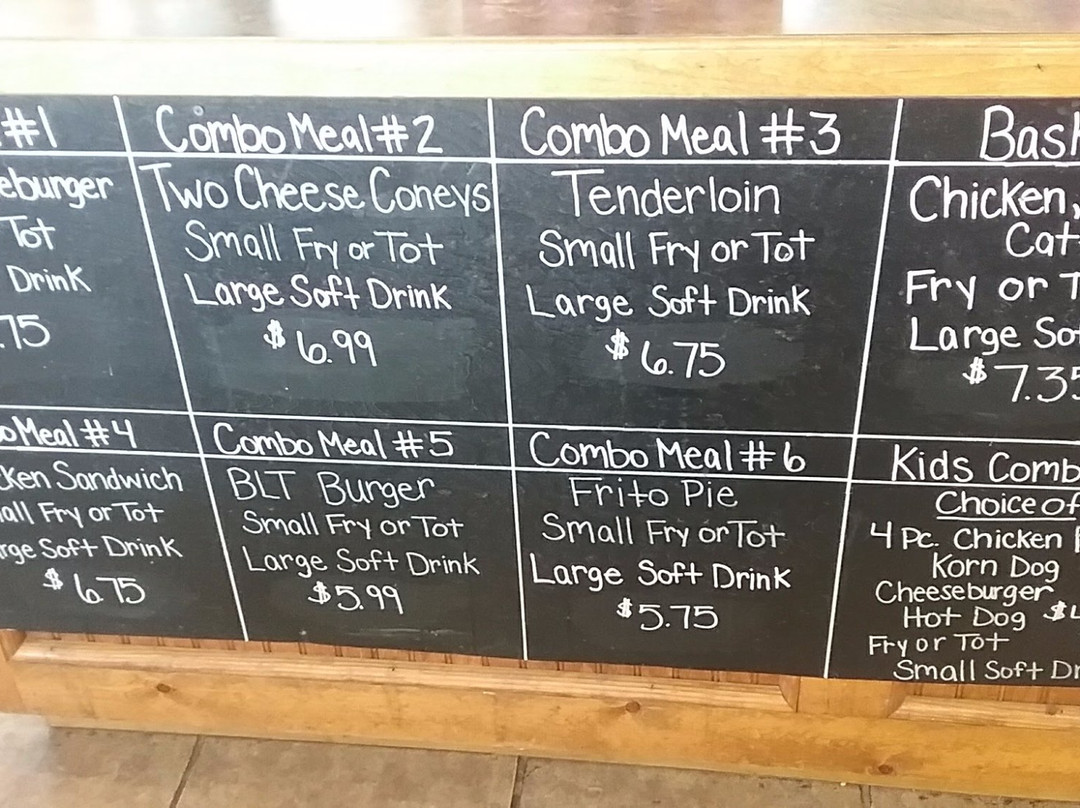 #1
eburger
Tot
Drink
.75
Combo Meal #2
Two Cheese Coneys
Small Fry or Tot
Large Soft Drink
$6.99
Combo Meal #3
Tenderloin
Small Fry or Tot
Large Soft Drink
$6.75
Bask
Chicken,
Cat
Fry or T
Large So
$7.35
o Meal #4
ken Sandwich
all Fry or Tot
rge Soft Drink
$6.75
Combo Meal #5
BLT Burger
Small Fry or Tot
Large Soft Drink
$5.99
Combo Meal #6
Frito Pie
Small Fry or Tot
Large Soft Drink
$5.75
Kids Comb
Choice of
4 Pc. Chicken
Korn Dog
Cheeseburger
Hot Dog $4
Fry or Tot
Small Soft Dr